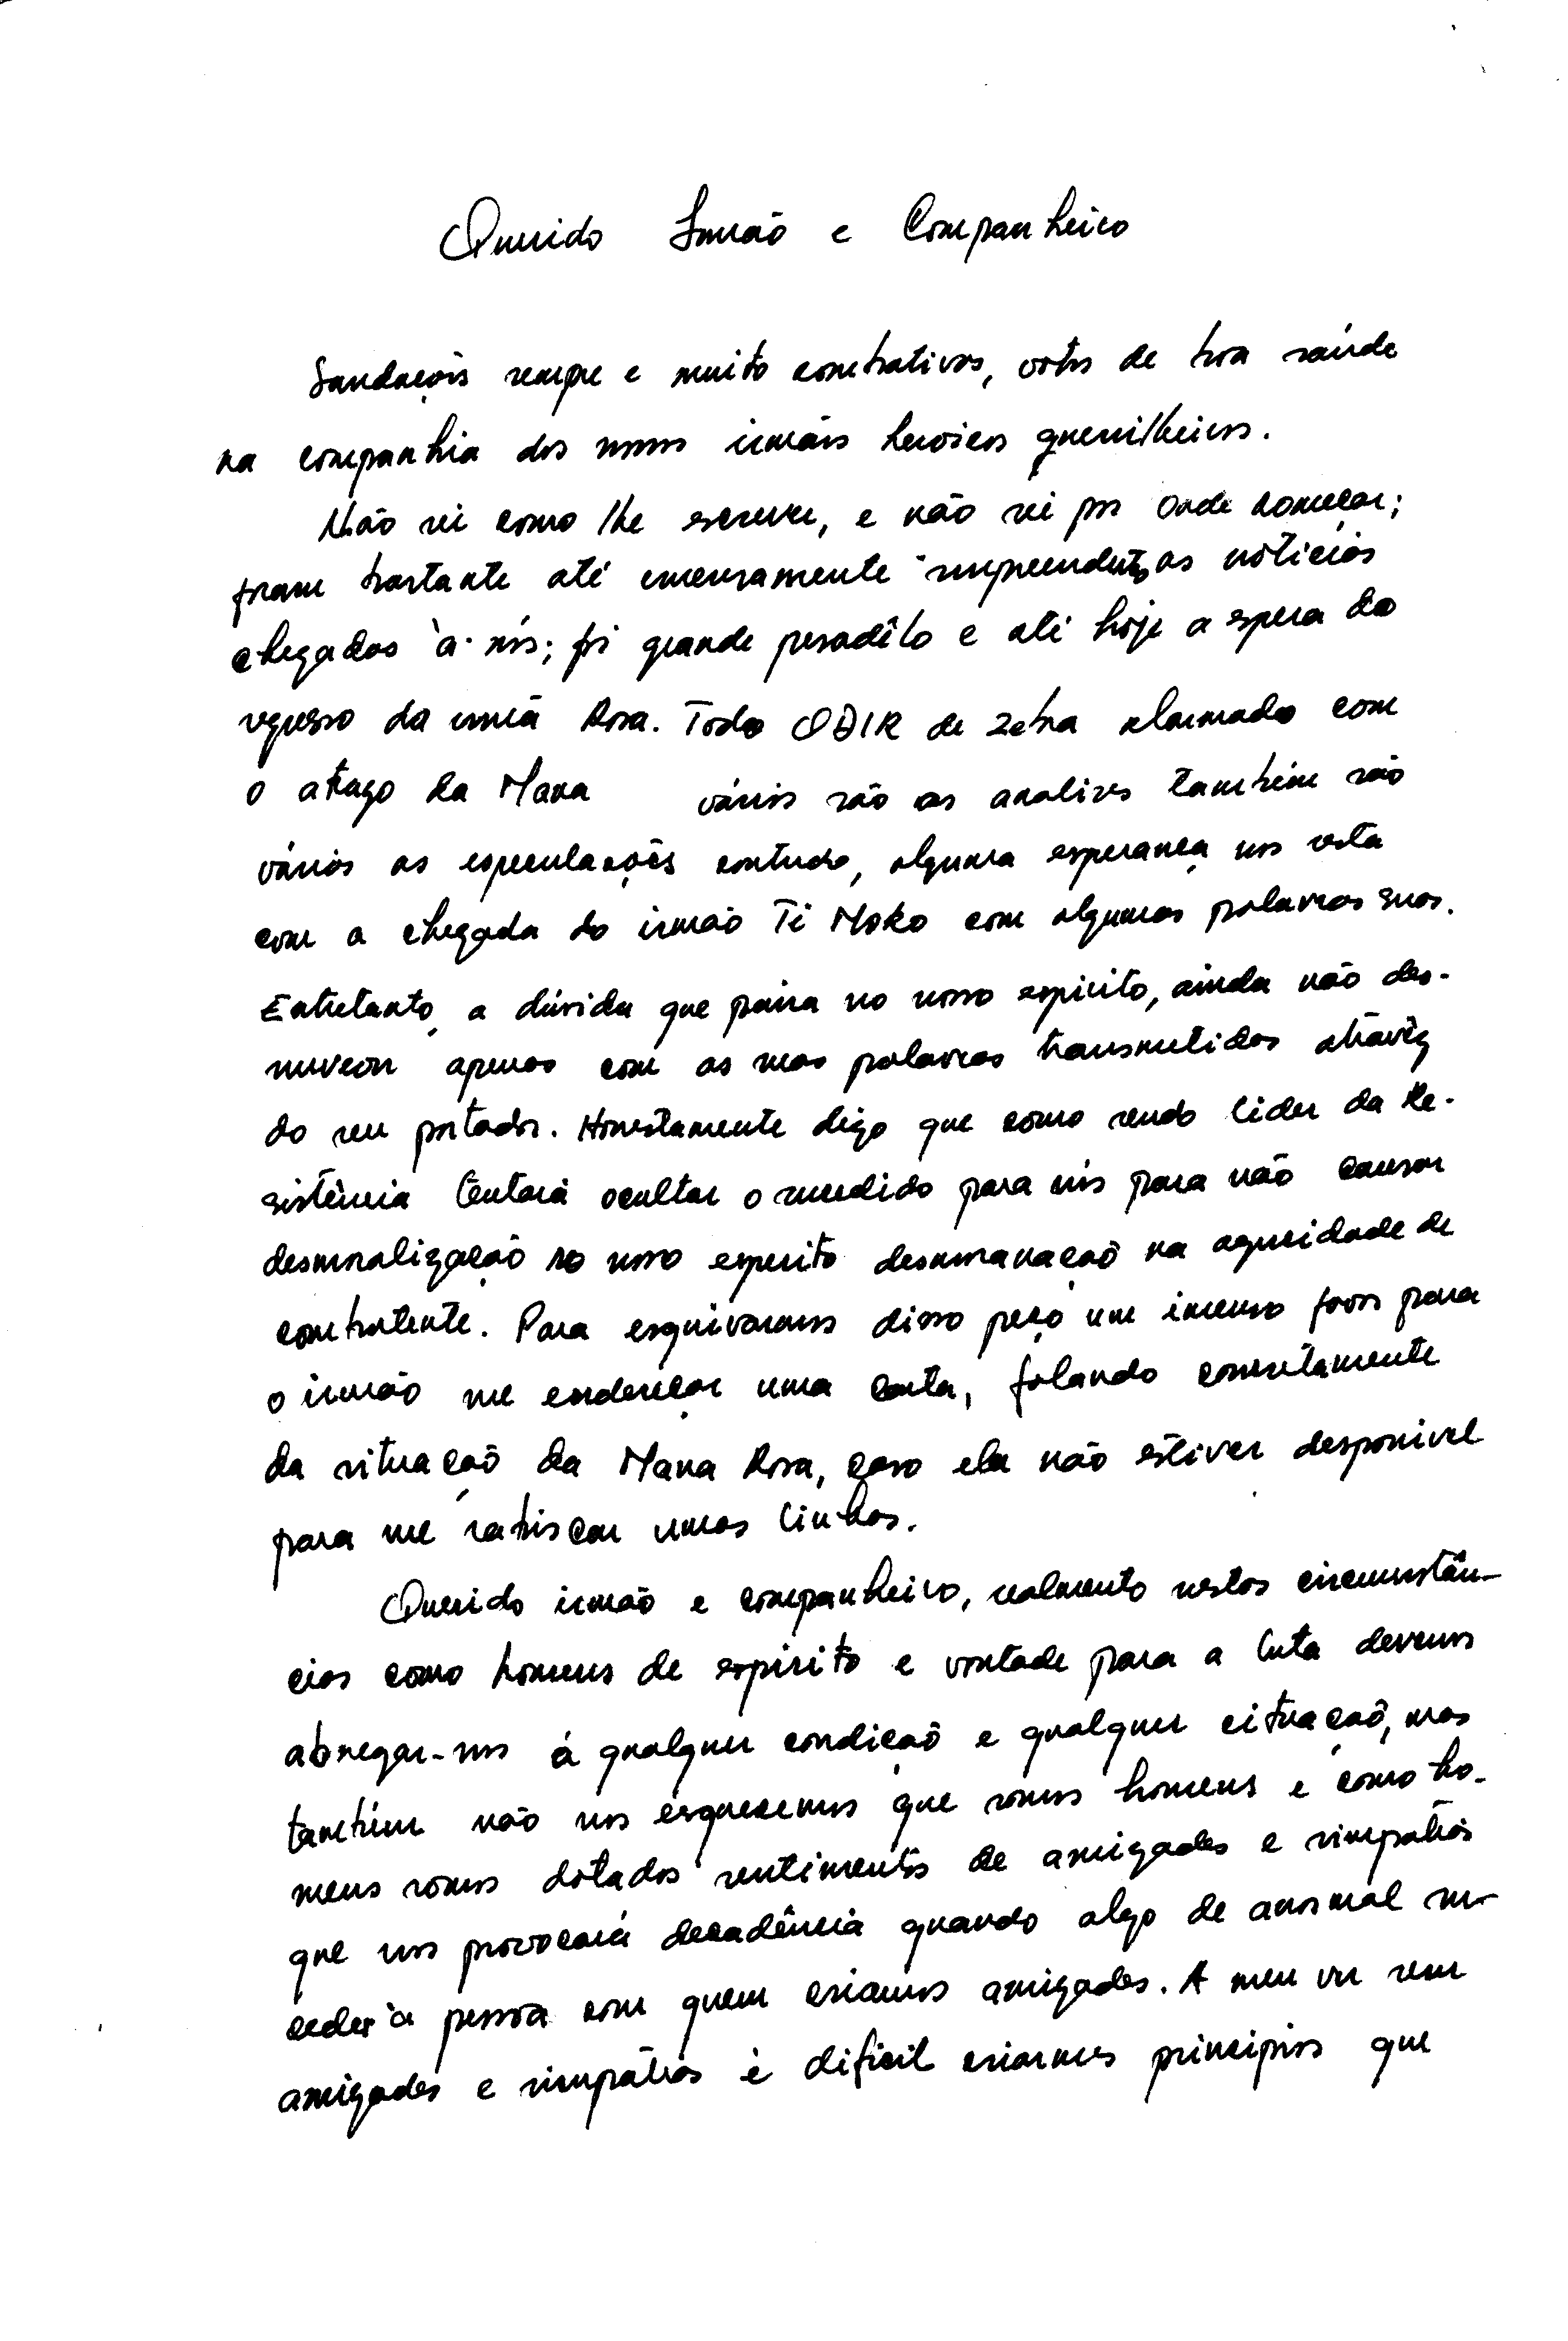 Querido Irmão e Companheiro
Saudações sempre e muito combativas, votos de boa saúde
na companhia dos nossos irmãos heroicos guerrilheiros.
Não sei como lhe escrever, e não sei por onde começar;
foram bastante até emensamente surpreendentes as noticias
chegadas à nós; foi grande pesadêlo e até hoje a espera do
regresso da irmã Rosa. Todo ODIR de Zebra alarmado com
o atrazo da Mana vários são as analizes também são
vários as especulações contudo, alguma esperança nos resta
com a chegada do irmão Ti Moko com algumas palavras suas.
Entretanto, a dúvida que paira no nosso espirito, ainda não des-
nuveou apenas com as suas palavras transmetidas através
do seu portador. Honestamente digo que como sendo lider da Re-
sistência tentará ocultar o sucedido para nós para não causar
desmoralização no nosso esperito desmanação na agressidade de
combatente. Para esquivarmos disso peço um imenso favor para
o irmão me endereçar uma carta, falando concretamente
da situação da Mana Rosa, caso ela não estiver desponivel
para me rabiscar umas linhas.
Querido irmão e companheiro, realmento nestas circumstân-
cias como homens de espirito e vontade para a luta devemos
abnegar-nos à qualquer condição e qualquer cituação, mas
também não nos esquecemos que somos homens e como ho-
mens somos dotados sentimentos de amizades e simpatias
que nos provocará decadência quando algo de anormal su-
ceder à pessoa com quem criamos amizades. A meu ver sem
amizades e simpátias è dificil criarmos principios que